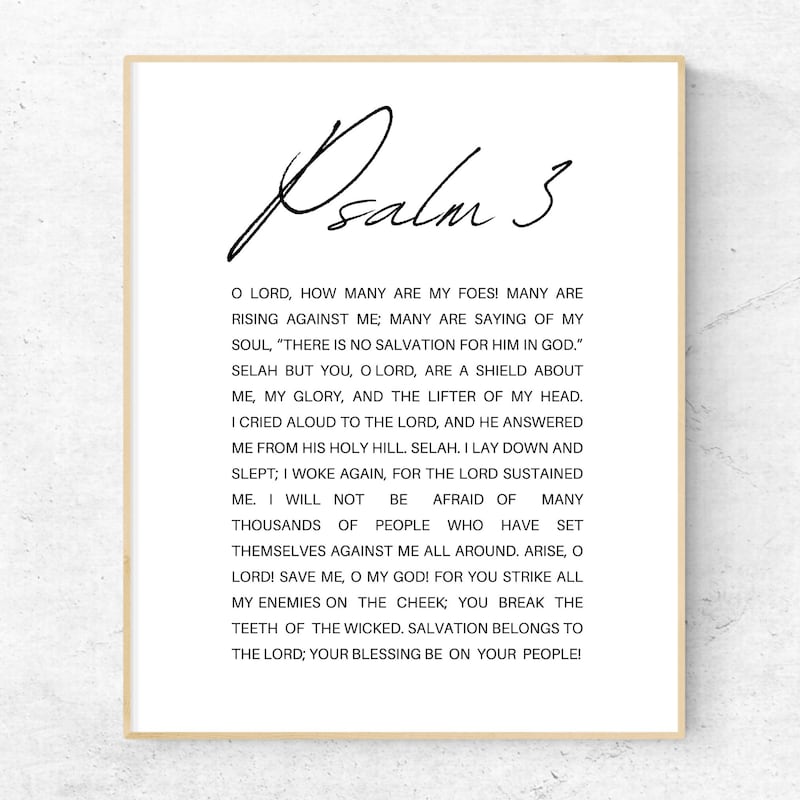 Psalm 3
O LORD, HOW MANY ARE MY FOES! MANY ARE
RISING AGAINST ME; MANY ARE SAYING OF MY
SOUL, “THERE IS NO SALVATION FOR HIM IN GOD.”
SELAH BUT YOU, O LORD, ARE A SHIELD ABOUT
ME, MY GLORY, AND THE LIFTER OF MY HEAD.
I CRIED ALOUD TO THE LORD, AND HE ANSWERED
ME FROM HIS HOLY HILL. SELAH. I LAY DOWN AND
SLEPT; I WOKE AGAIN, FOR THE LORD SUSTAINED
ME. I WILL NOT BE AFRAID OF MANY
THOUSANDS OF PEOPLE WHO HAVE SET
THEMSELVES AGAINST ME ALL AROUND. ARISE, O
LORD! SAVE ME, O MY GOD! FOR YOU STRIKE ALL
MY ENEMIES ON THE CHEEK; YOU BREAK THE
TEETH OF THE WICKED. SALVATION BELONGS TO
THE LORD; YOUR BLESSING BE ON YOUR PEOPLE!